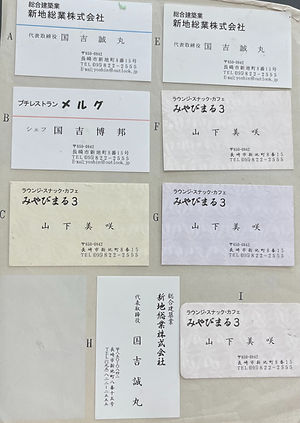 A
総合建築業
新地総業株式会社
代表取締役 国吉誠丸
〒850-0842
長崎市新地町8番15号
TEL095)822-2555
E
総合建築業
新地総業株式会社
代表取締役 国吉誠丸
〒850-0842
長崎市新地町8番15号
TEL095)822-2555
B
プチレストラン メルク
シェフ 国吉博邦
〒850-0842
長崎市新地町8番15号
TEL095)822-2555
F
ラウンジ・スナック・カフェ
みやびまる3
山下美咲
〒850-0842
長崎市新地町8番15
TEL095)822-2555
C
ラウンジ・スナック・カフェ
みやびまる3
山下美咲
〒850-0842
長崎市新地町8番15
TEL095)822-2555
G
ラウンジ・スナック・カフェ
みやびまる3
山下美咲
〒850-0842
長崎市新地町8番15
TEL095)822-2555
H
総合建築業
新地総業株式会社
代表取締役 国吉誠丸
長崎市新地町八番十五号
I
ラウンジ・スナック・カフェ
みやびまる3
山下美咲
〒850-0842
長崎市新地町8番15
TEL095)822-2555